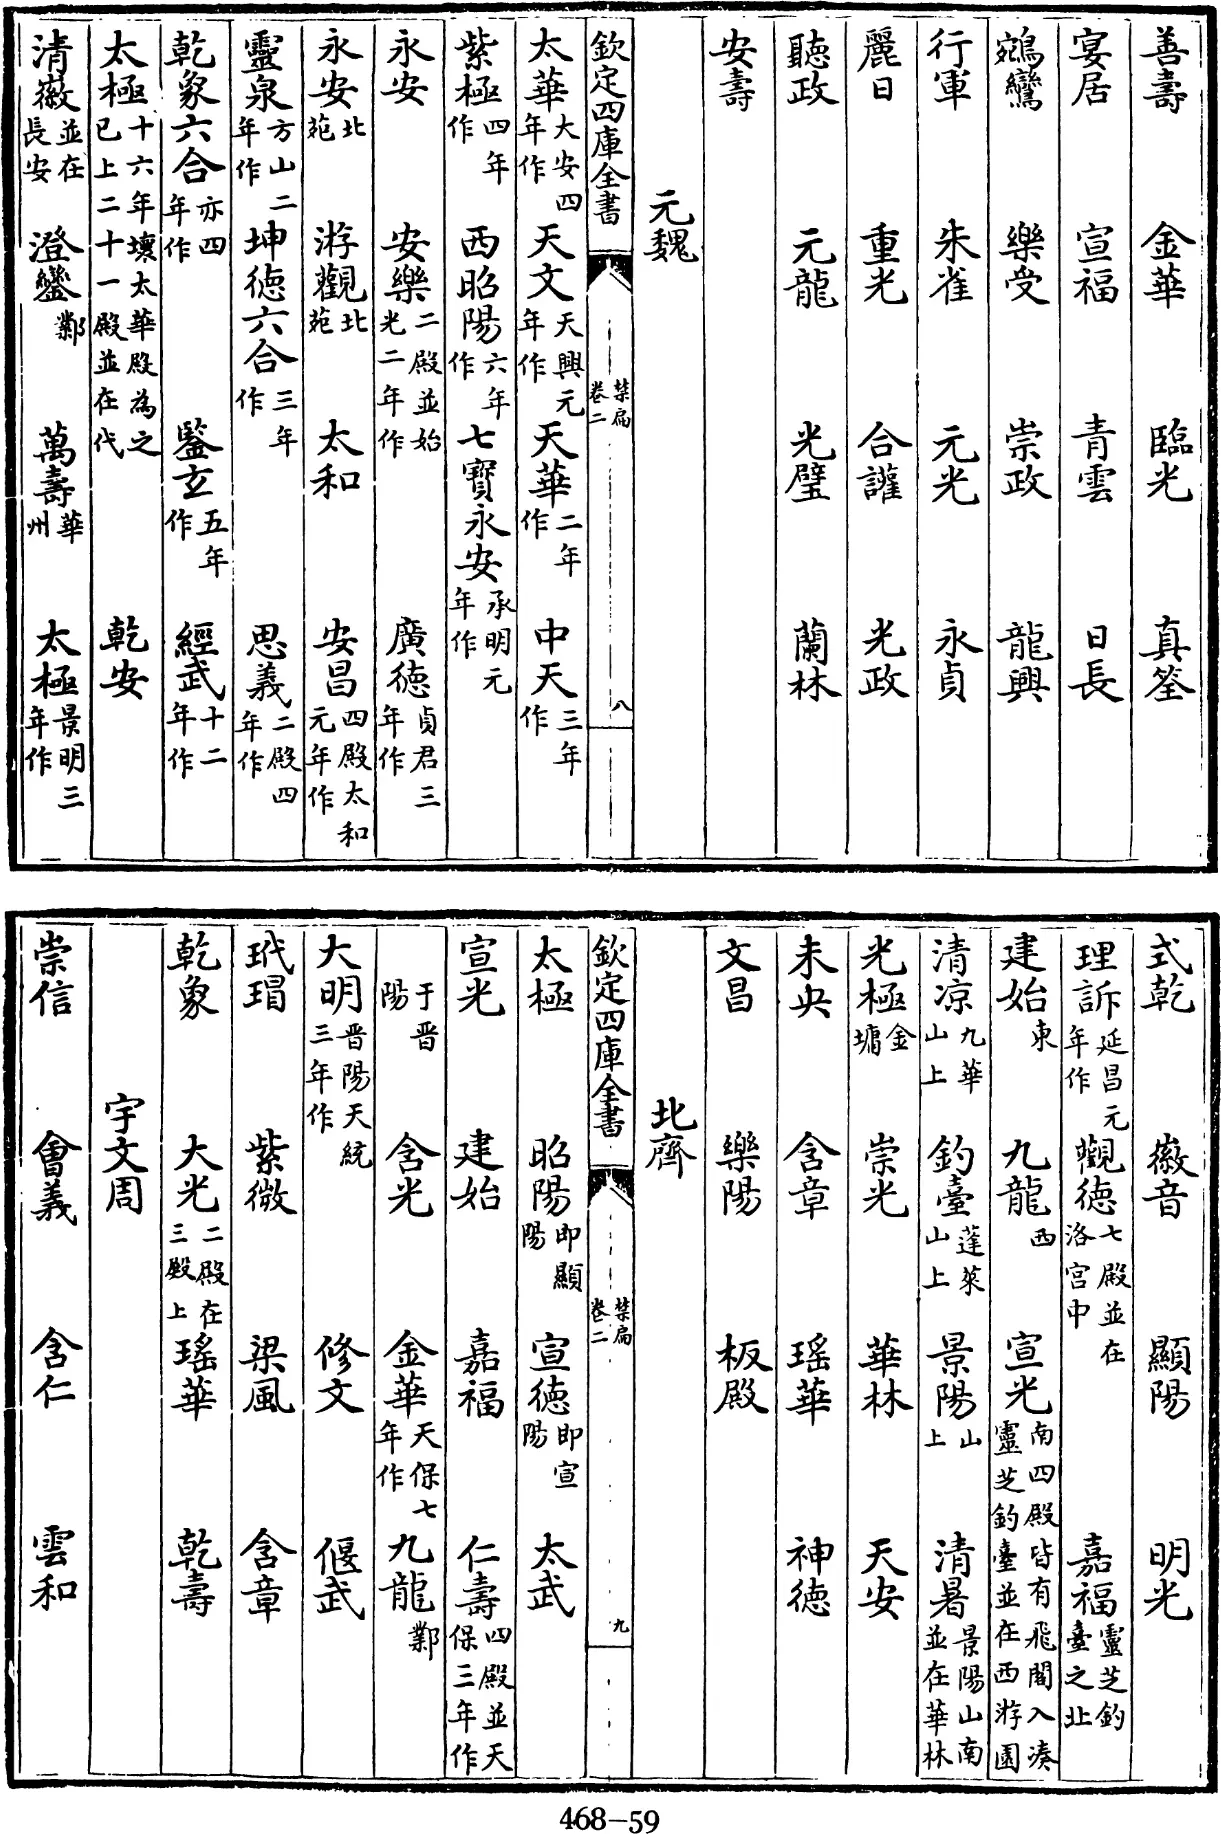 善壽　金華　臨光　真筌
宴居　宣福　青雲　日長
鵷鸞　樂受　崇政　龍興
行軍　朱雀　元光　永貞
麗日　重光　合讙　光政
聽政　元龍　光璧　蘭林
安壽
元魏
欽定四庫全書　禁扁卷二　八
太華大安四年作　天文天興元年作　天華二年作　中天三年作
紫極四年作　西昭陽六年作　七寶永安承明元年作
永安　安樂二殿並始光二年作　廣德貞君三年作
永安北苑　游觀北苑　太和　安昌四殿太和元年作
靈泉方山二年作　坤德六合三年作　思義二殿四年作
乾象六合亦四年作　鍳玄五年作　經武十二年作
太極十六年壞太華殿為之已上二十一殿並在代　乾安
清徽並在長安　澄鸞鄴　萬壽華州　太極景明三年作
式乾　徽音　顯陽　明光
理訴延昌元年作　觀德七殿並在洛宫中　嘉福靈芝釣臺之北
建始東　九龍西　宣光南四殿皆有飛閣入凑靈芝釣臺並在西游園
清凉九華山上　釣臺蓬萊山上　景陽山上　清暑景陽山南並在華林
光極金墉　崇光　華林　天安
未央　含章　瑶華　神德
文昌　樂陽　板殿
北齊
欽定四庫全書　禁扁卷二　九
太極　昭陽即顯陽　宣德即宣陽　太武
宣光　建始　嘉福　仁壽四殿並天保三年作
于晋陽　含光　金華天保七年作　九龍鄴
大明晋陽天統三年作　修文　偃武
玳瑁　紫微　梁風　含章
乾象　大光二殿在三殿上　瑶華　乾壽
宇文周
崇信　會義　含仁　雲和
468-59